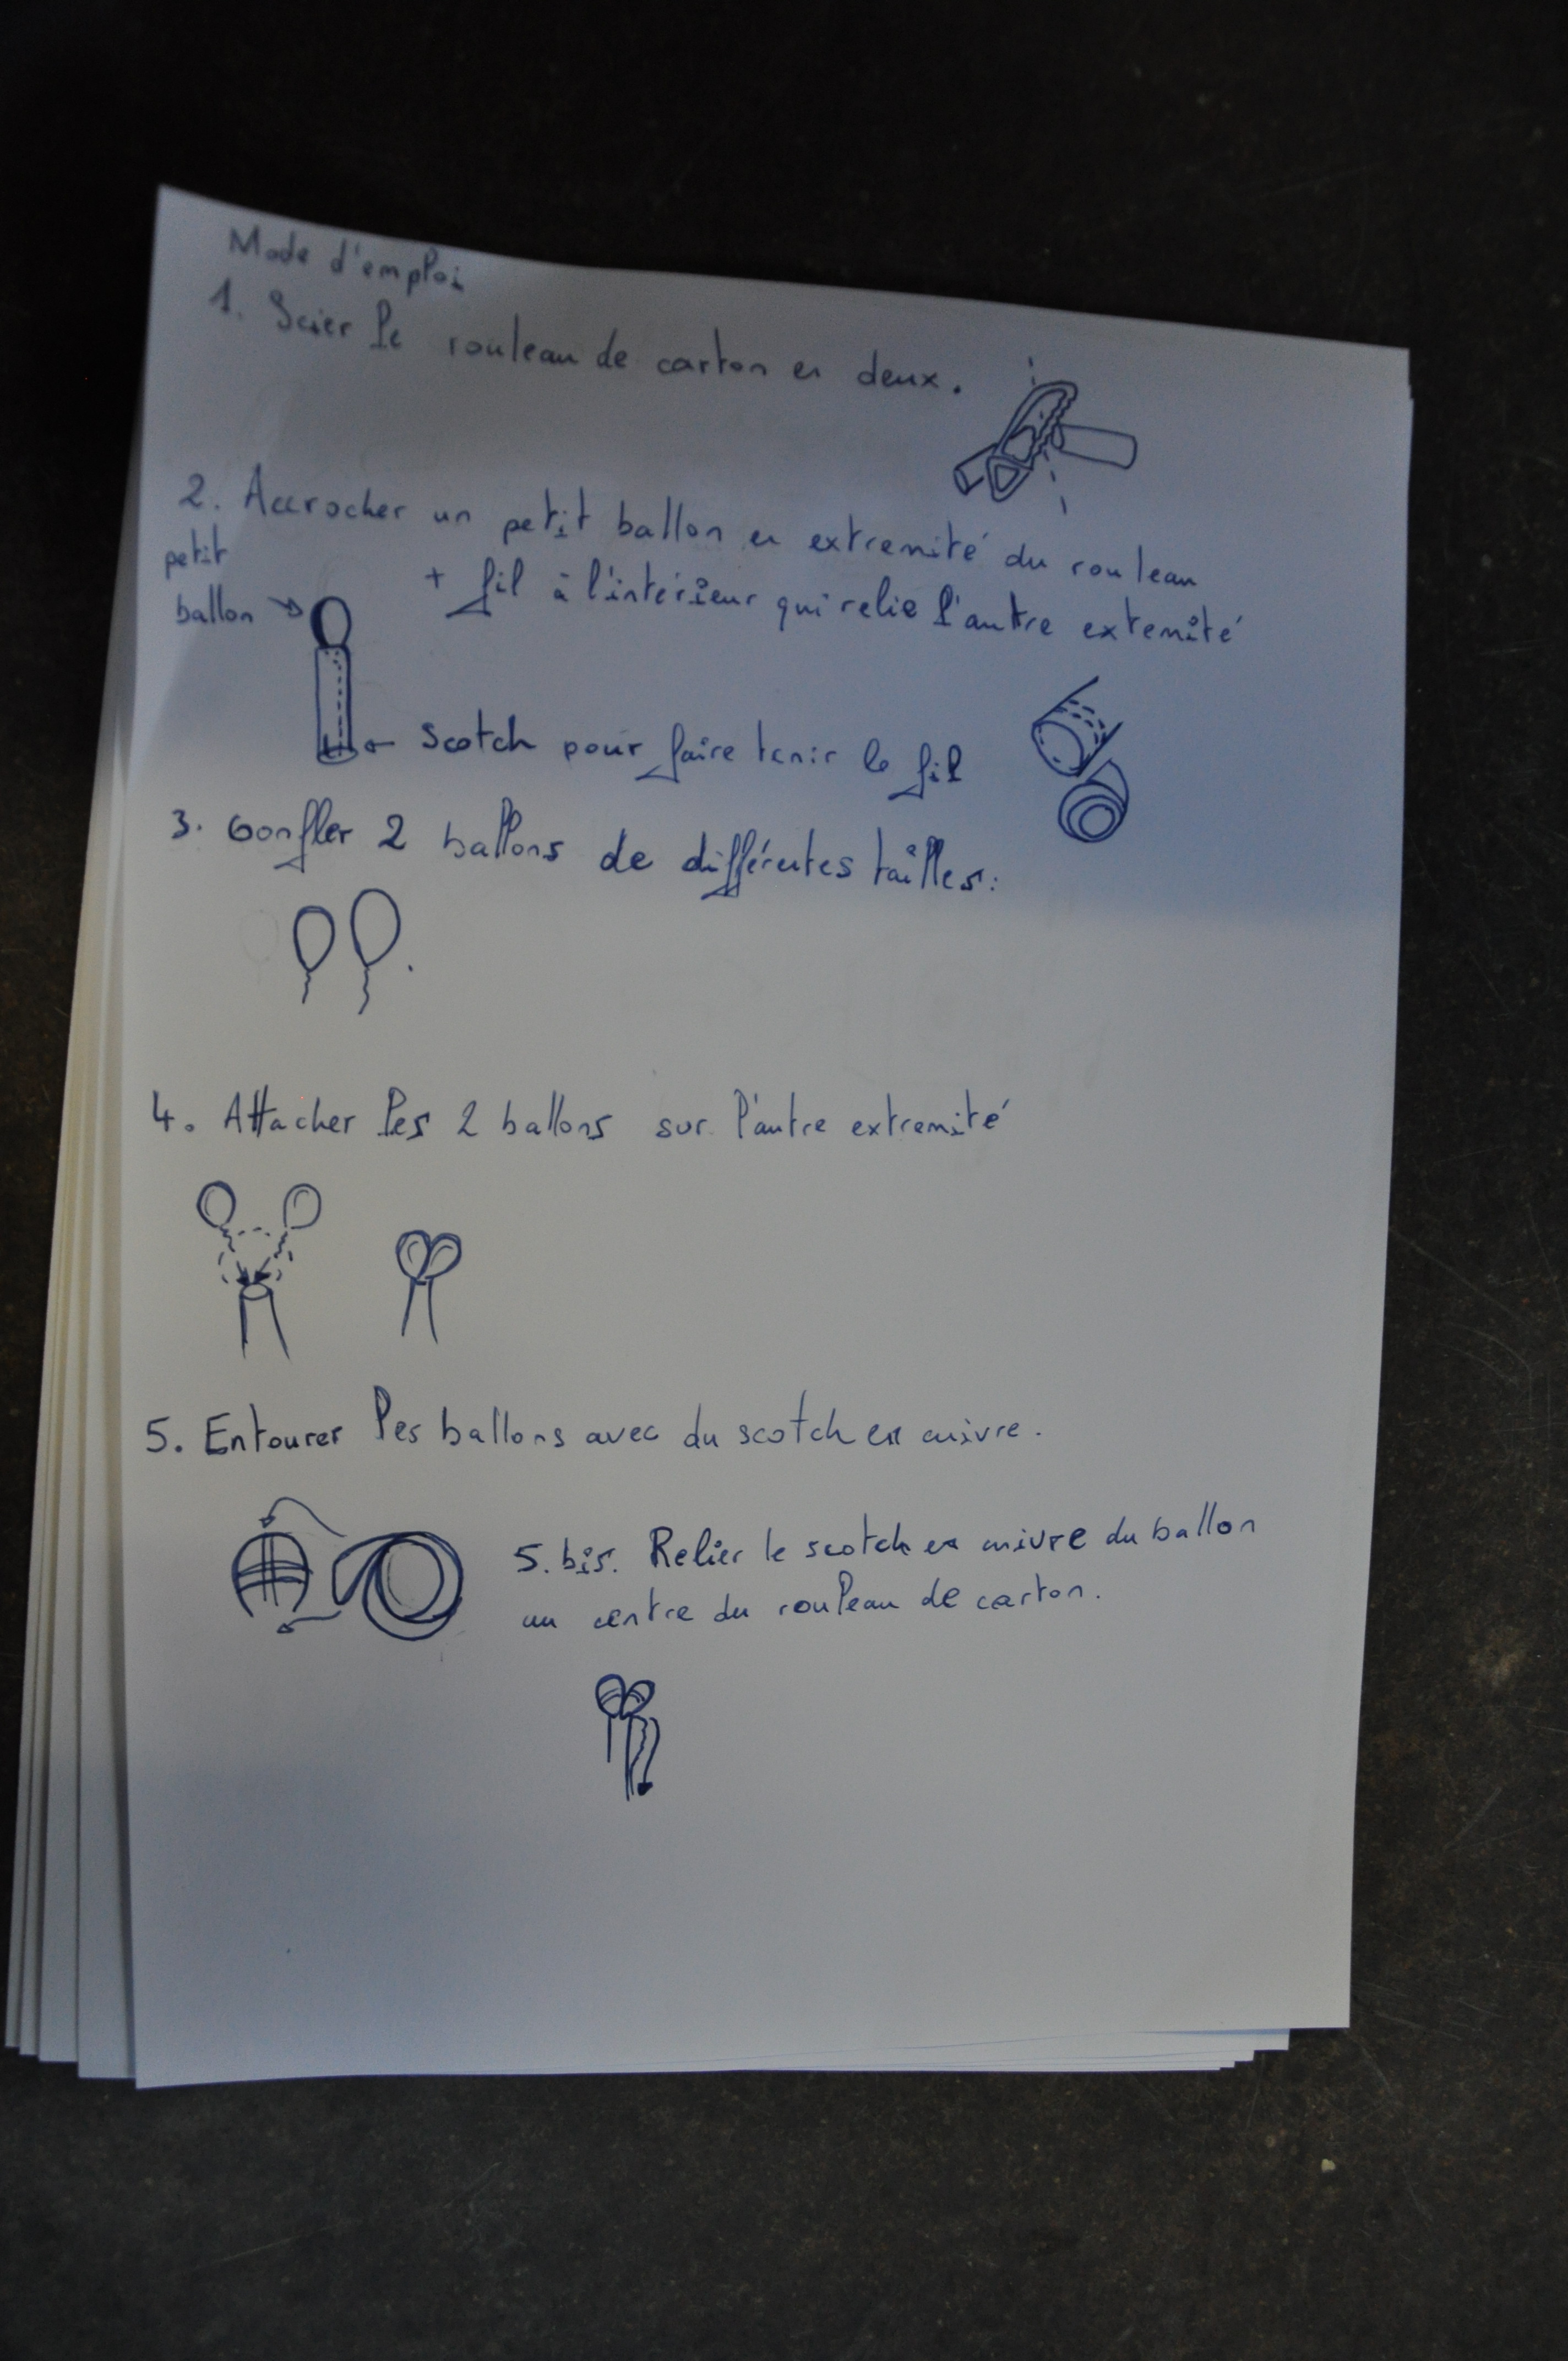 Mode d'emploi
1. Scier le rouleau de carton en deux.
2. Accrocher un petit ballon en extremité du rouleau
+ fil à l'intérieur qui relie l'autre extemité
petit
ballon
scotch pour faire tenir le fil
3. Gonfler 2 ballons de différentes tailles:
4. Attacher les 2 ballons sur l'autre extremité
5. Entourer les ballons avec du scotch en cuivre.
5. bis. Relier le scotch en cuivre du ballon
au centre du rouleau de carton.